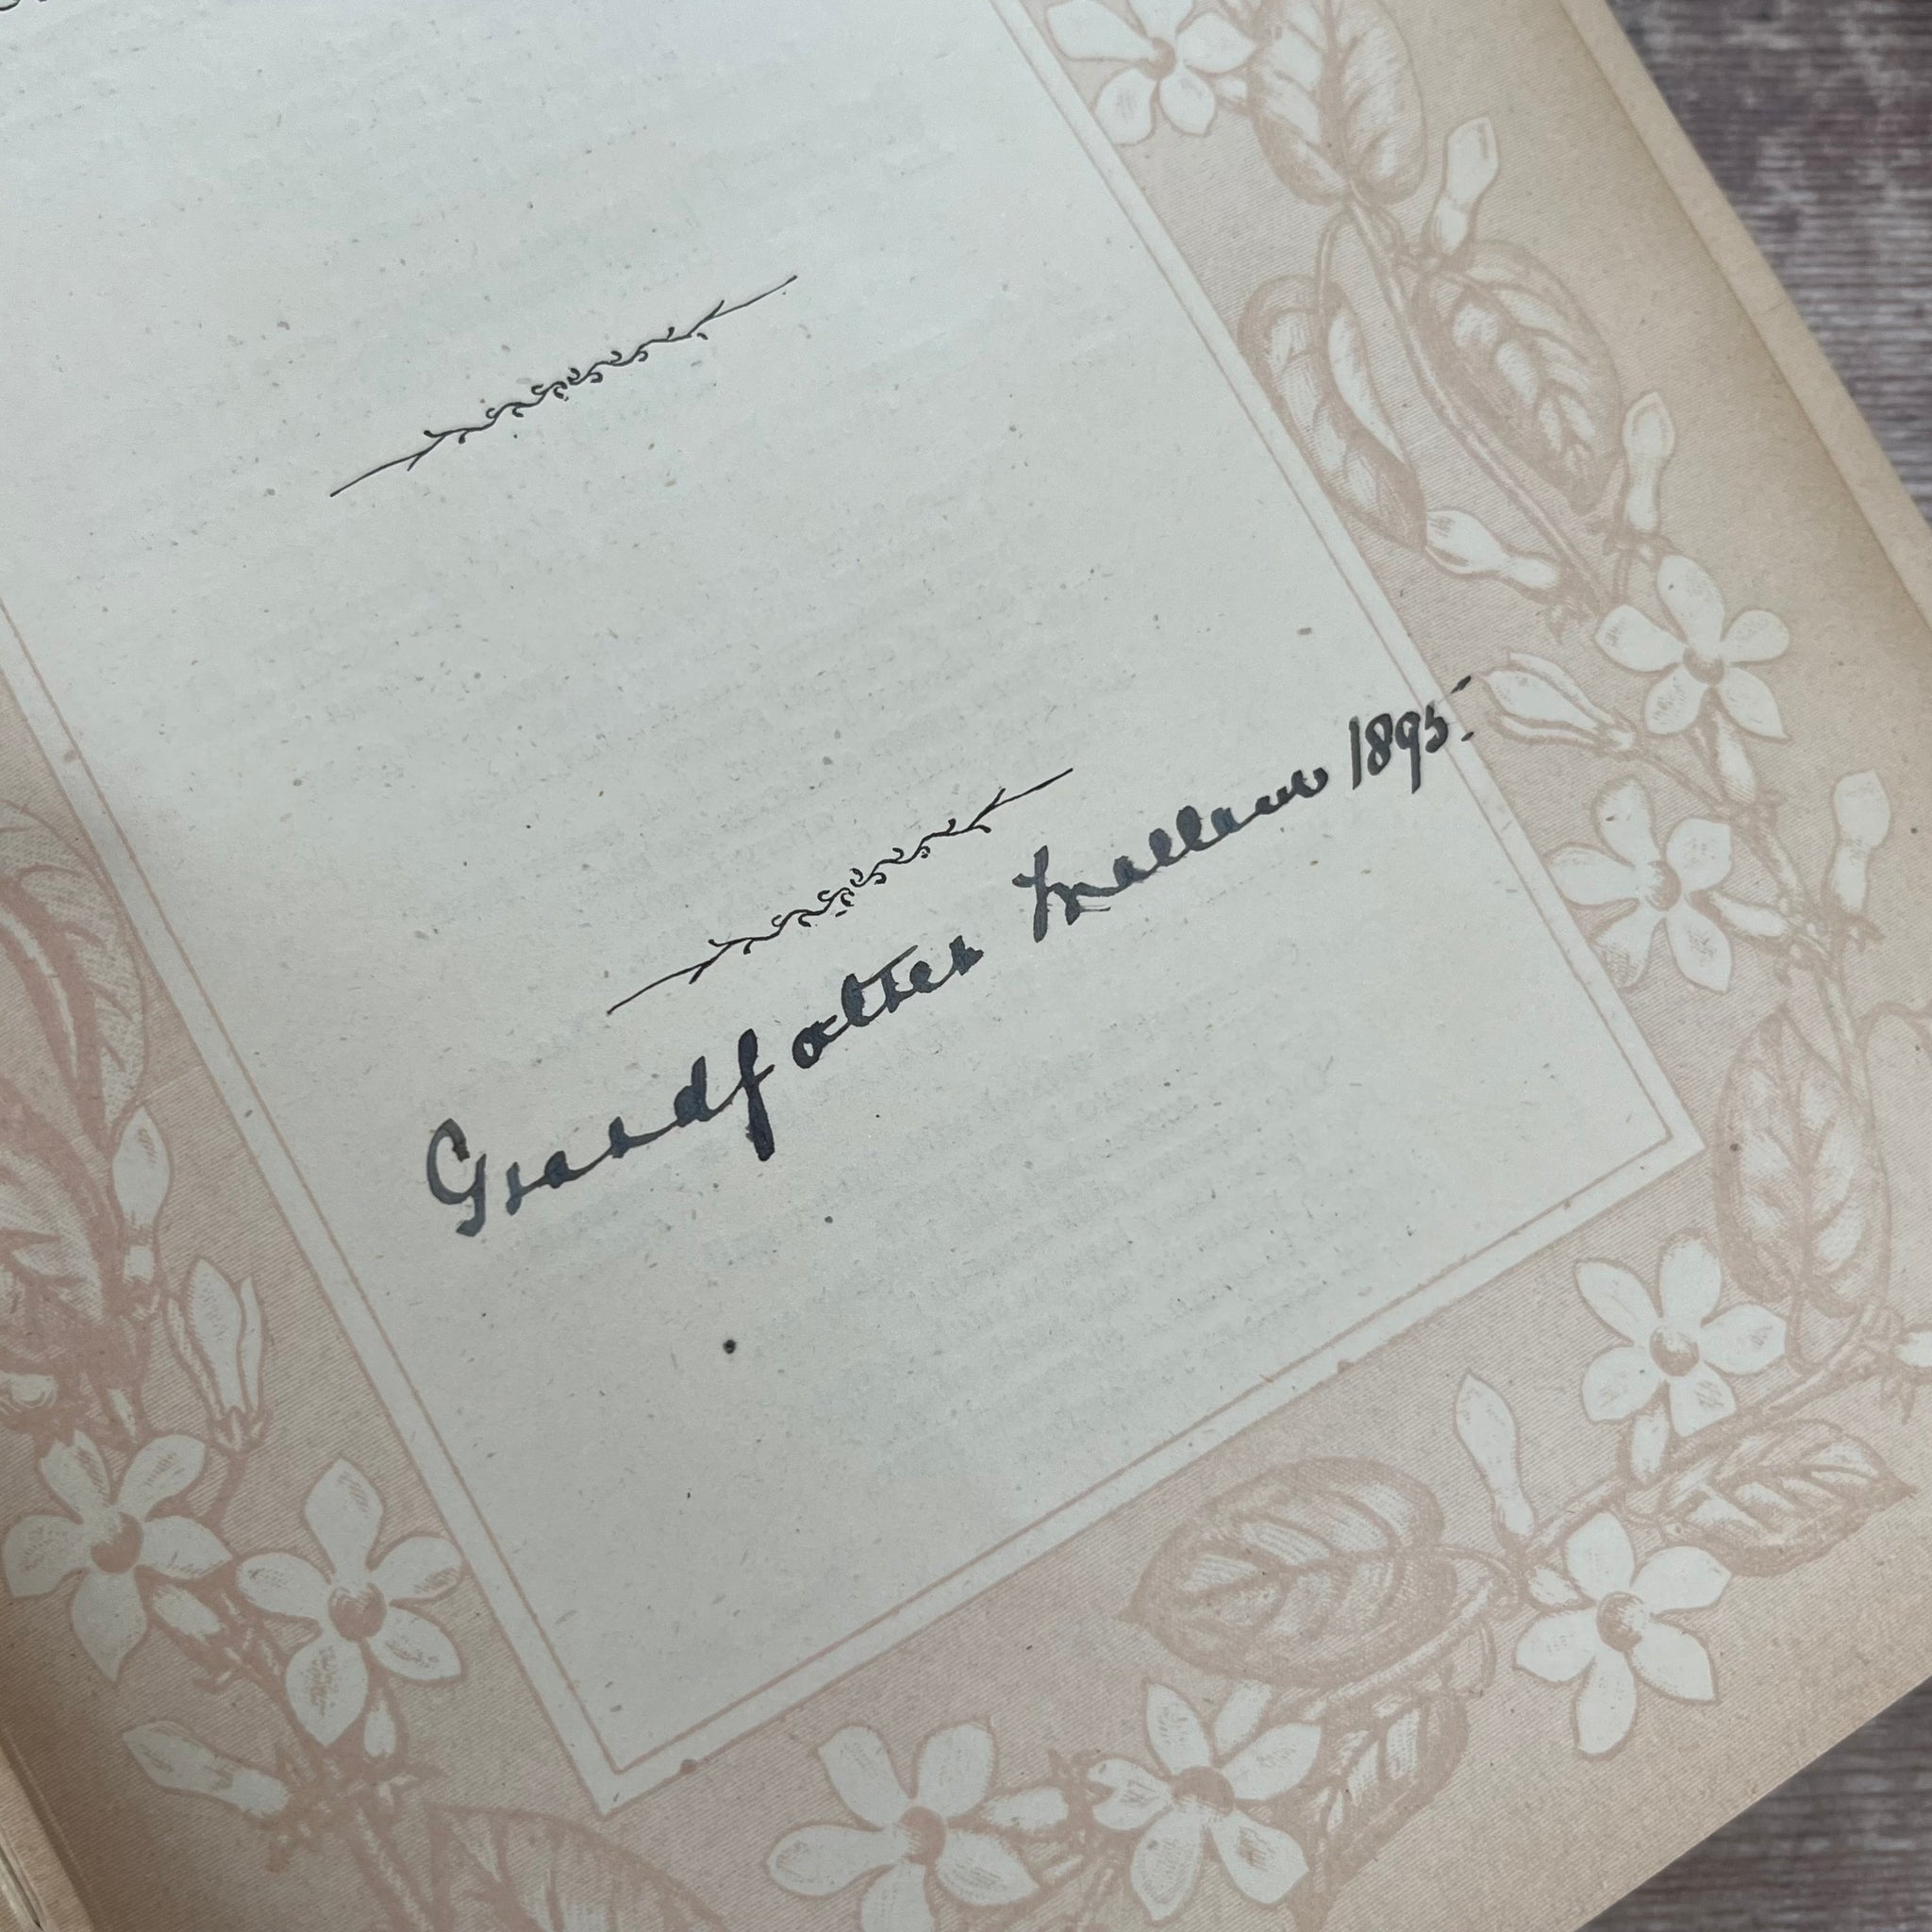 Grandfather Mallam 1895.